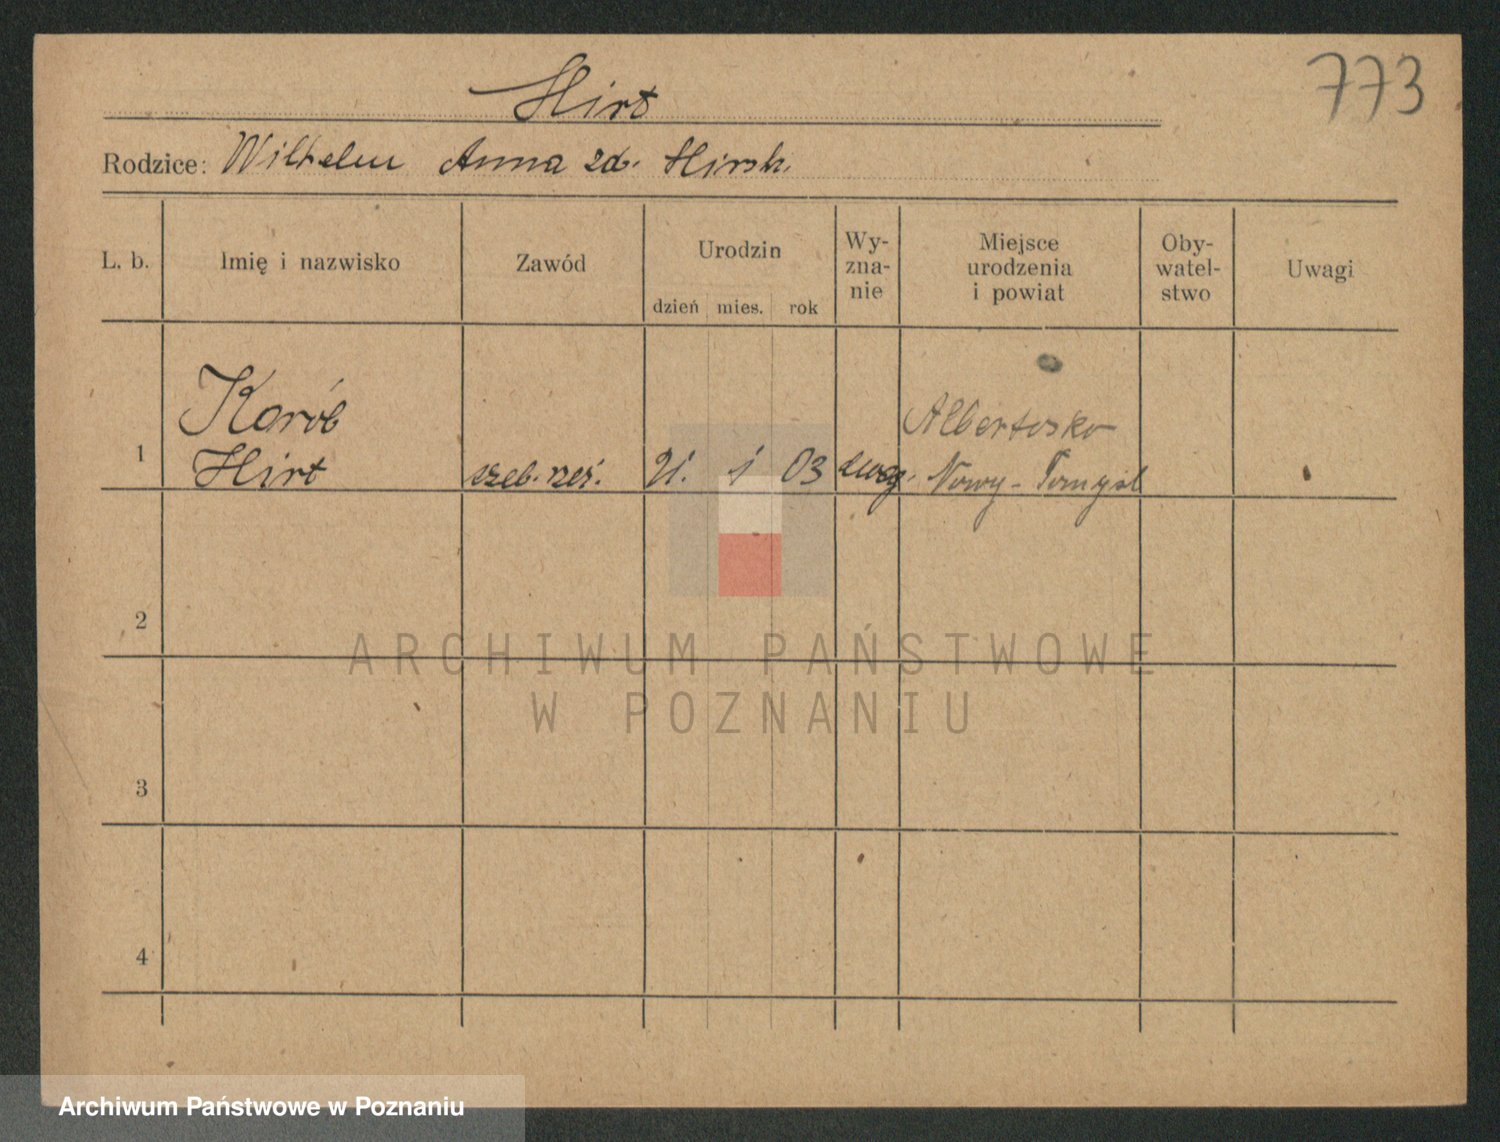 Hirt
773
Rodzice: Wilhelm Anna zd. Hirsh.
L. b.
Imię i nazwisko
Zawód
Urodzin
dzień mies. rok
Wy-
zna-
nie
Miejsce
urodzenia
i powiat
Oby-
watel-
stwo
Uwagi
1
Karól
Hirt
czel. rzeź.
21. 1 03
ewag.
Albertosko
Nowy-Tomyśl
2
3
4
ARCHIWUM PAŃSTWOWE
W POZNANIU
Archiwum Państwowe w Poznaniu